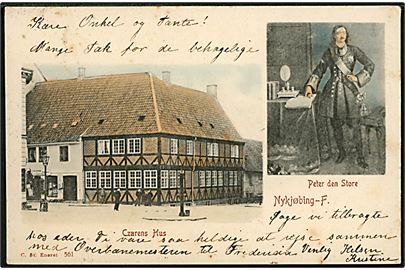 Kære Onkel og Tante!
Mange Tak for de behagelige
Peter den Store
Nykjøbing-F.
Dage vi tilbragte
Czarens Hus
C. St. Eneret 561
hos eder. Vi vare saa heldige at rejse sammen
med Overbanemesteren til Fredericia Venlig Hilsen
Kristine